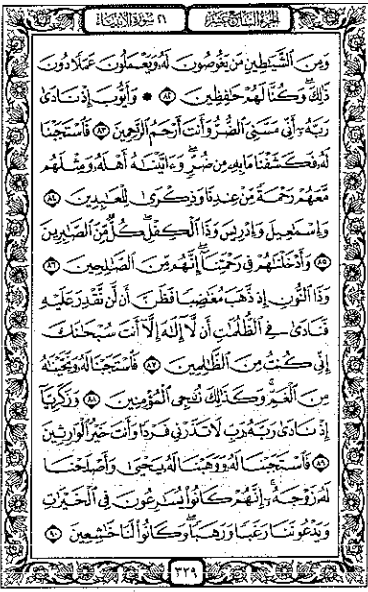 الجزء السابع عشر
٢١ سورة الأنبياء
وَمِنَ ٱلشَّيَٰطِينِ مَن يَغُوصُونَ لَهُۥ وَيَعْمَلُونَ عَمَلًا دُونَ
ذَٰلِكَ ۖ وَكُنَّا لَهُمْ حَٰفِظِينَ ٨٢ ۞ وَأَيُّوبَ إِذْ نَادَىٰ
رَبَّهُۥٓ أَنِّى مَسَّنِىَ ٱلضُّرُّ وَأَنتَ أَرْحَمُ ٱلرَّٰحِمِينَ ٨٣ فَٱسْتَجَبْنَا
لَهُۥ فَكَشَفْنَا مَا بِهِۦ مِن ضُرٍّ ۖ وَءَاتَيْنَٰهُ أَهْلَهُۥ وَمِثْلَهُم
مَّعَهُمْ رَحْمَةً مِّنْ عِندِنَا وَذِكْرَىٰ لِلْعَٰبِدِينَ ٨٤
وَإِسْمَٰعِيلَ وَإِدْرِيسَ وَذَا ٱلْكِفْلِ ۖ كُلٌّ مِّنَ ٱلصَّٰبِرِينَ
٨٥ وَأَدْخَلْنَٰهُمْ فِى رَحْمَتِنَآ ۖ إِنَّهُم مِّنَ ٱلصَّٰلِحِينَ ٨٦
وَذَا ٱلنُّونِ إِذ ذَّهَبَ مُغَٰضِبًا فَظَنَّ أَن لَّن نَّقْدِرَ عَلَيْهِ
فَنَادَىٰ فِى ٱلظُّلُمَٰتِ أَن لَّآ إِلَٰهَ إِلَّآ أَنتَ سُبْحَٰنَكَ
إِنِّى كُنتُ مِنَ ٱلظَّٰلِمِينَ ٨٧ فَٱسْتَجَبْنَا لَهُۥ وَنَجَّيْنَٰهُ
مِنَ ٱلْغَمِّ ۚ وَكَذَٰلِكَ نُۨجِى ٱلْمُؤْمِنِينَ ٨٨ وَزَكَرِيَّآ
إِذْ نَادَىٰ رَبَّهُۥ رَبِّ لَا تَذَرْنِى فَرْدًا وَأَنتَ خَيْرُ ٱلْوَٰرِثِينَ
٨٩ فَٱسْتَجَبْنَا لَهُۥ وَوَهَبْنَا لَهُۥ يَحْيَىٰ وَأَصْلَحْنَا
لَهُۥ زَوْجَهُۥٓ ۚ إِنَّهُمْ كَانُوا۟ يُسَٰرِعُونَ فِى ٱلْخَيْرَٰتِ
وَيَدْعُونَنَا رَغَبًا وَرَهَبًا ۖ وَكَانُوا۟ لَنَا خَٰشِعِينَ ٩٠
٣٢٩